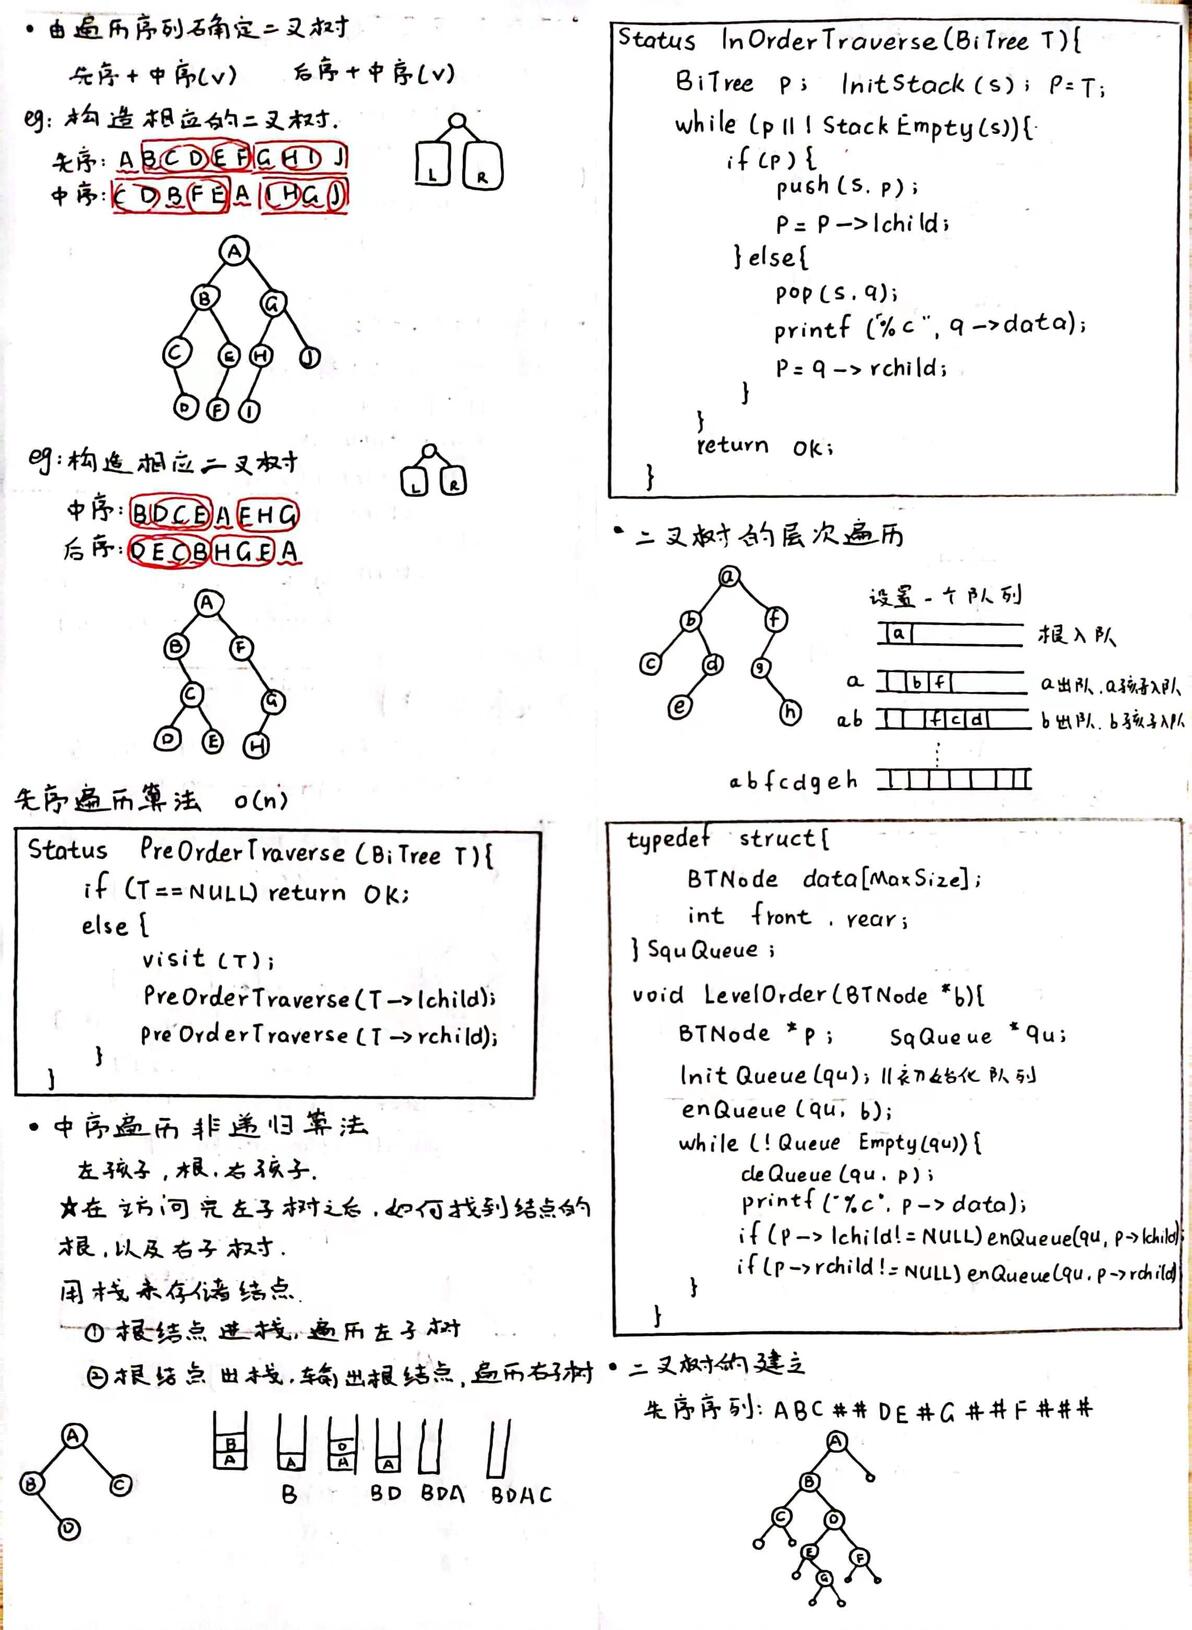 • 由遍历序列确定二叉树
先序+中序(v) 后序+中序(v)
eg: 构造相应的二叉树.
先序: A B C D E F G H I J
中序: C D B F E A I H G J
L R
A
B G
C E H J
D F I
eg: 构造相应二叉树
中序: B D C E A E H G
后序: D E C B H G E A
L R
A
B F
C G
D E H
先序遍历算法 O(n)
Status PreOrderTraverse(BiTree T){
if (T==NULL) return OK;
else {
visit (T);
PreOrderTraverse(T->lchild);
PreOrderTraverse(T->rchild);
}
}
• 中序遍历非递归算法
左孩子,根,右孩子.
☆在访问完左子树之后,如何找到结点的
根,以及右子树.
用栈来存储结点.
① 根结点进栈,遍历左子树
② 根结点出栈,输出根结点,遍历右子树
A
B C
D
B D
A A A A
B BD BDA BDAC
Status InOrderTraverse(BiTree T){
BiTree p; InitStack(s); P=T;
while (p||!StackEmpty(s)){
if (P) {
push(s, p);
P=P->lchild;
}else{
pop(s, q);
printf("%c", q->data);
P=q->rchild;
}
}
return OK;
}
• 二叉树的层次遍历
a
b f
c d g
e h
设置一个队列
a 根入队
a b f a出队,a孩子入队
ab f c d b出队,b孩子入队
abfcdgeh
typedef struct{
BTNode data[MaxSize];
int front, rear;
}SquQueue;
void LevelOrder(BTNode *b){
BTNode *p; SqQueue *qu;
InitQueue(qu); //初始化队列
enQueue(qu, b);
while (!QueueEmpty(qu)){
deQueue(qu, p);
printf("%c", p->data);
if(p->lchild!=NULL)enQueue(qu, p->lchild);
if(p->rchild!=NULL)enQueue(qu, p->rchild)
}
}
• 二叉树的建立
先序序列: ABC##DE#G##F###
A
B
C D
E F
G